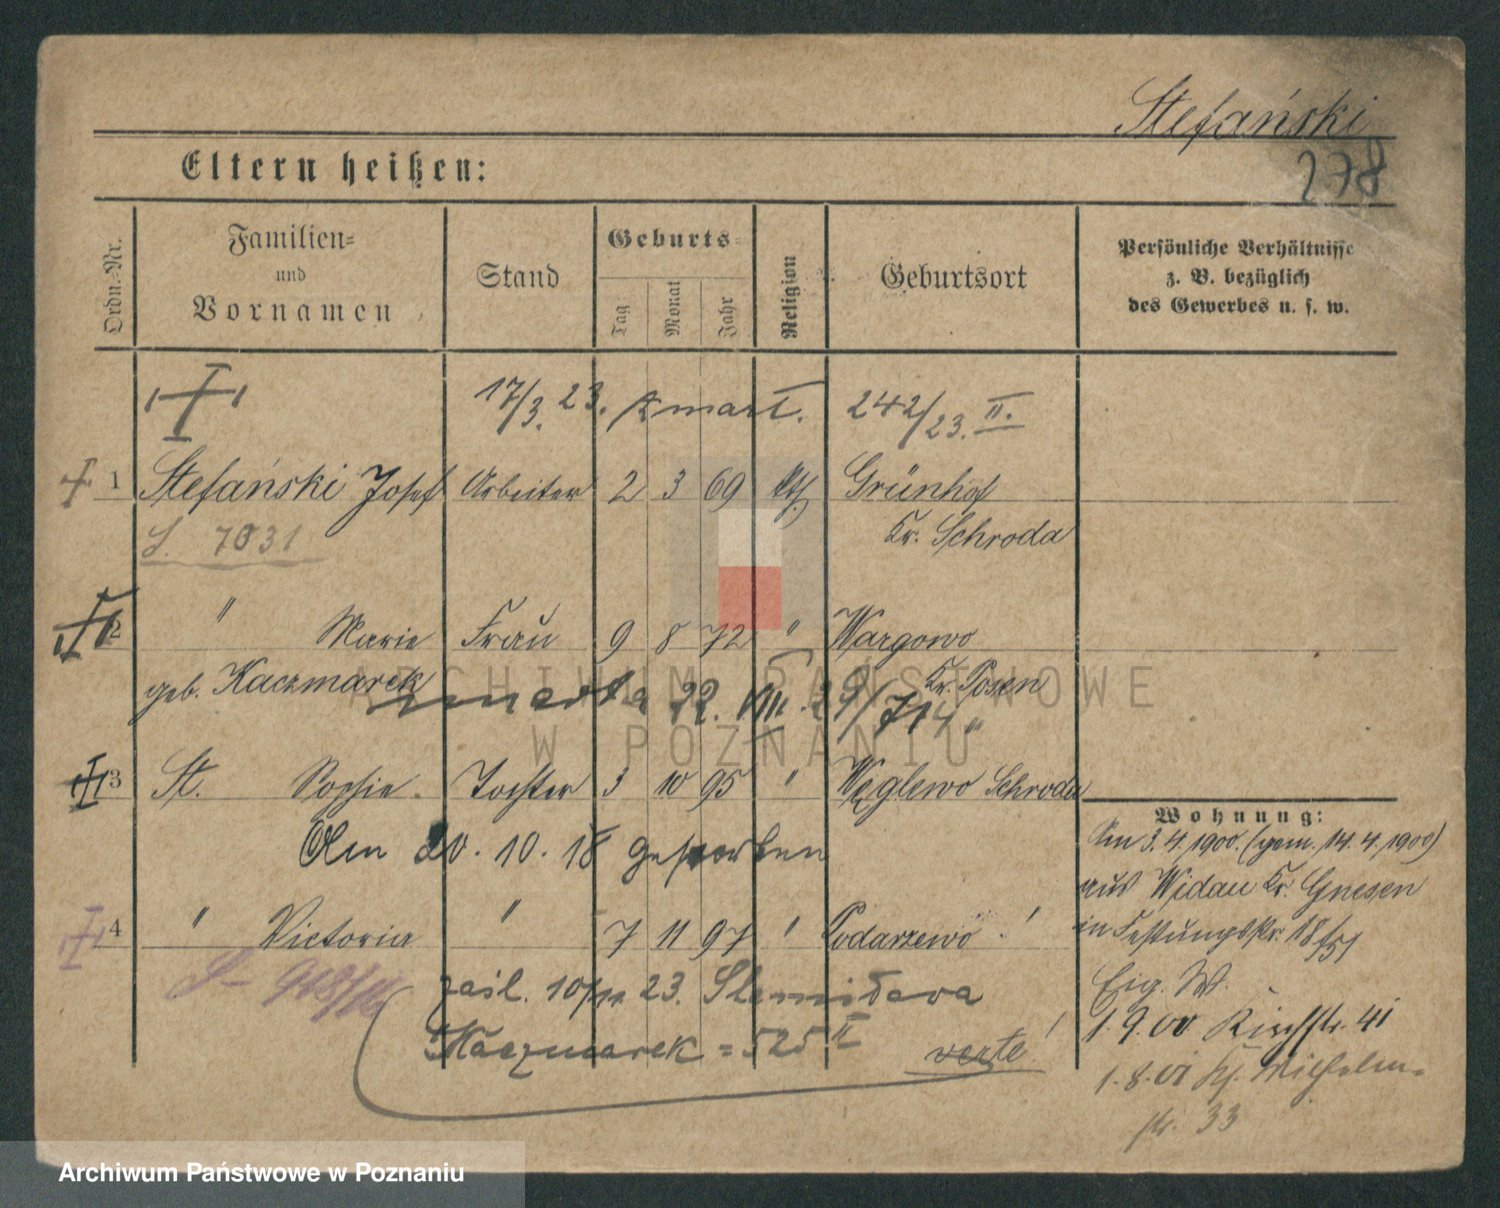 Stefański
278
Eltern heißen:
Ordn.-Nr.
Familien-
und
Vornamen
Stand
Geburts-
Tag
Monat
Jahr
Religion
Geburtsort
Persönliche Verhältnisse
z. B. bezüglich
des Gewerbes u. s. w.
17/3. 23. zmarł. 242/23. II.
1 Stefański Josef Arbeiter 2 3 69 kth. Grünhof
Kr. Schroda
S. 7031
2 " Marie Frau 9 8 72 " Wargowo
geb. Kaczmarek Kr. Posen
zmarła 22. VIII. 29/714
3 St. Sophie Tochter 3 10 95 " Węglewo Schroda
Am 20. 10. 18 gestorben
4 " Victoria " 7 11 97 " Podarzewo "
zaśl. 10/11. 23. Stanisława
Kaczmarek = 525 II
verte!
Wohnung:
Am 3.4.1900. (gem. 14.4.1900)
aus Widau Kr. Gnesen
in Festungsstr. 18/51
Eig. W.
1.9.00 Kirchstr. 41
1.8.01 Wilhelm-
str. 33
ARCHIWUM PAŃSTWOWE
W POZNANIU
Archiwum Państwowe w Poznaniu